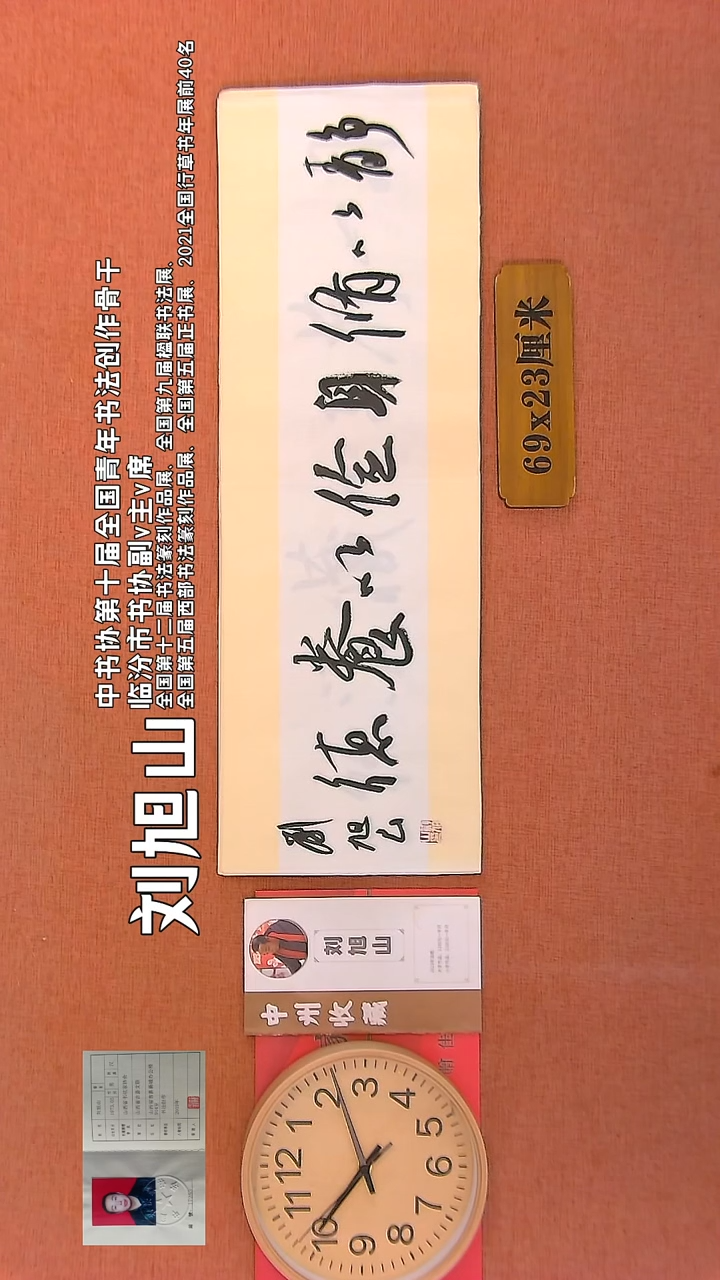 刘旭山
中书协第十届全国青年书法创作骨干
临汾市书协副v主v席
全国第十二届书法篆刻作品展、全国第九届楹联书法展、
全国第五届西部书法篆刻作品展、全国第五届正书展、2021全国行草书年展前40名
静以修身儉以養德
劉旭山
69x23厘米
中州收藏
刘旭山
12
1
2
3
4
5
6
7
8
9
10
11